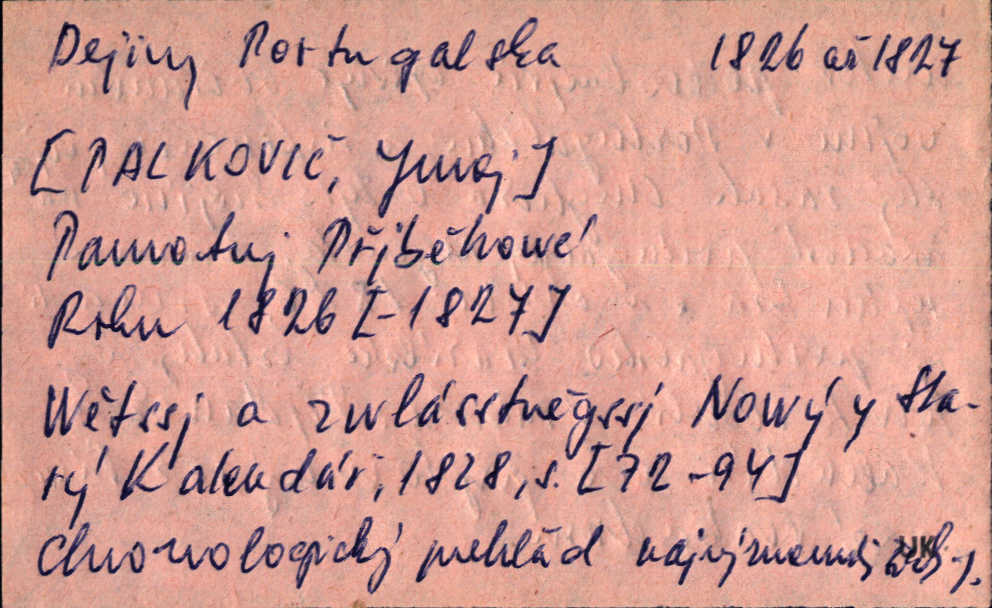 Dejiny Portugalska 1826 až 1827
[PALKOVIČ, Juraj]
Pamotnj Přjběhowé
Roku 1826 [-1827]
Wětssj a zwlásstněgssj Nowý y Sta-
rý Kalendár, 1828, s. [72-94]
Chronologický prehľad najvýznamnej
UK